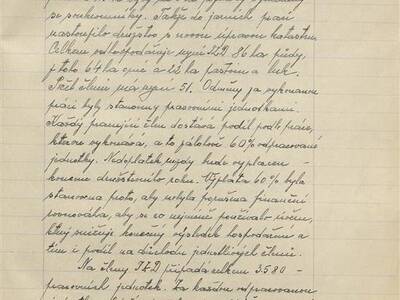 se soukromníky. Takže do jarních prací
nastoupilo družstvo s novou úpravou katastru.
Celkem obhospodařuje nyní JZD 86 ha půdy,
z toho 64 ha orné a 22 ha pastvin a luk.
Počet členů má nyní 51. Odměny za vykonanou
práci byly stanoveny pracovními jednotkami.
Každý pracující člen dostává podíl podle práce,
kterou vykonává, a to zálohově 60% odpracované
jednotky. Nedoplatek mzdy bude vyplacen
koncem družstevního roku. Výplata 60% byla
stanovena proto, aby nebyla porušena finanční
rovnováha, aby se co nejméně používalo úvěru,
který snižuje konečný výsledek hospodaření a
tím i podíl na důchodu jednotlivých členů.
Na členy JZD připadá celkem 3.580 -
pracovních jednotek. Za každou odpracovanou